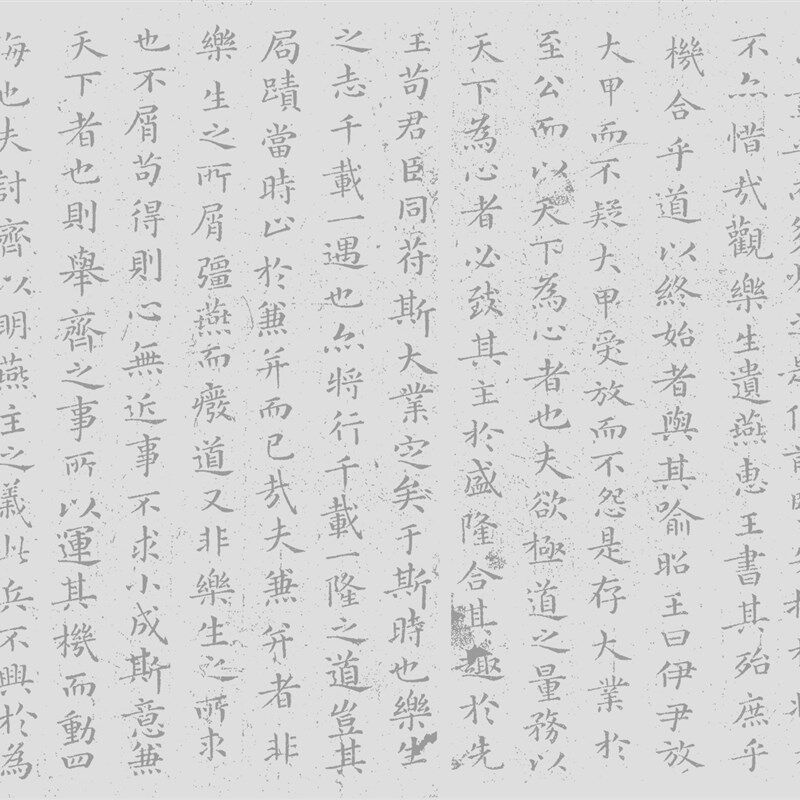 不亦惜哉觀樂生遺燕惠王書其殆庶乎
機合乎道以終始者與其喻昭王曰伊尹放
大甲而不疑大甲受放而不怨是存大業於
至公而以天下為心者也夫欲極道之量務以
天下為心者必致其主於盛隆合其趣於先
王苟君臣同苻斯大業定矣于斯時也樂生
之志千載一遇也亦將行千載一隆之道豈其
局蹟當時止於兼并而已哉夫兼并者非
樂生之所屑彊燕而廢道又非樂生之所求
也不屑苟得則心無近事不求小成斯意兼
天下者也則舉齊之事所以運其機而動四
海也夫討齊以明燕主之義此兵不興於為